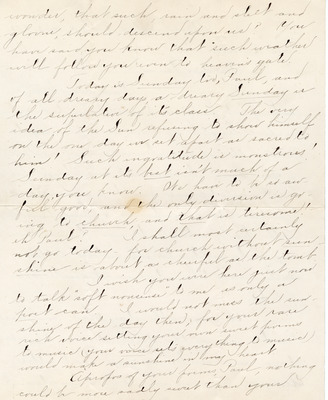 wonder, that such rain and sleet and
gloom, should descend upon us! You
have said you know that such weather
will follow you even to heaven's gate!
Today is Sunday too, Paul, and
of all dreary days a dreary Sunday is
the superlative of its class. The very
idea of the Sun refusing to show himself
on the one day in set apart as sacred to
him! Such ingratitude is monstrous!
Sunday at its best isn't much of a
day, you know. One has to be so aw-
ful good, and the only diversion is go-
ing to church, and that is tiresome!
eh Paul? I shall most certainly
not go today, for church without sun
shine is about as cheerful as the tomb.
I wish you were here just now
to talk "soft nonsense" to me as only a
poet can. I would not miss the sun-
shine of the day then; for your rare
rich voice setting your own sweet poems
to music (your voice sets everything to music)
would make a sunshine in my heart.
Apropos of your poems, Paul, nothing
could be more sadly sweet than your